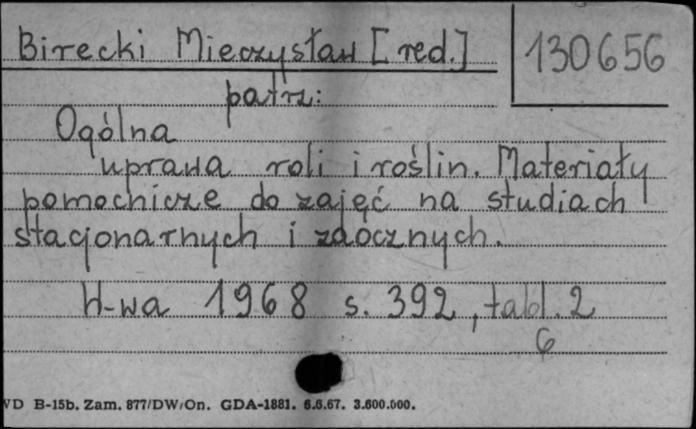 Birecki Mieczysław [red.]
130656
patrz:
Ogólna
uprawa roli i roślin. Materiały
pomocnicze do zajęć na studiach
stacjonarnych i zaocznych.
W-wa 1968 s. 392, tabl. 2
6
WD B-15b. Zam. 877/DW/On. GDA-1881. 6.6.67. 3.600.000.